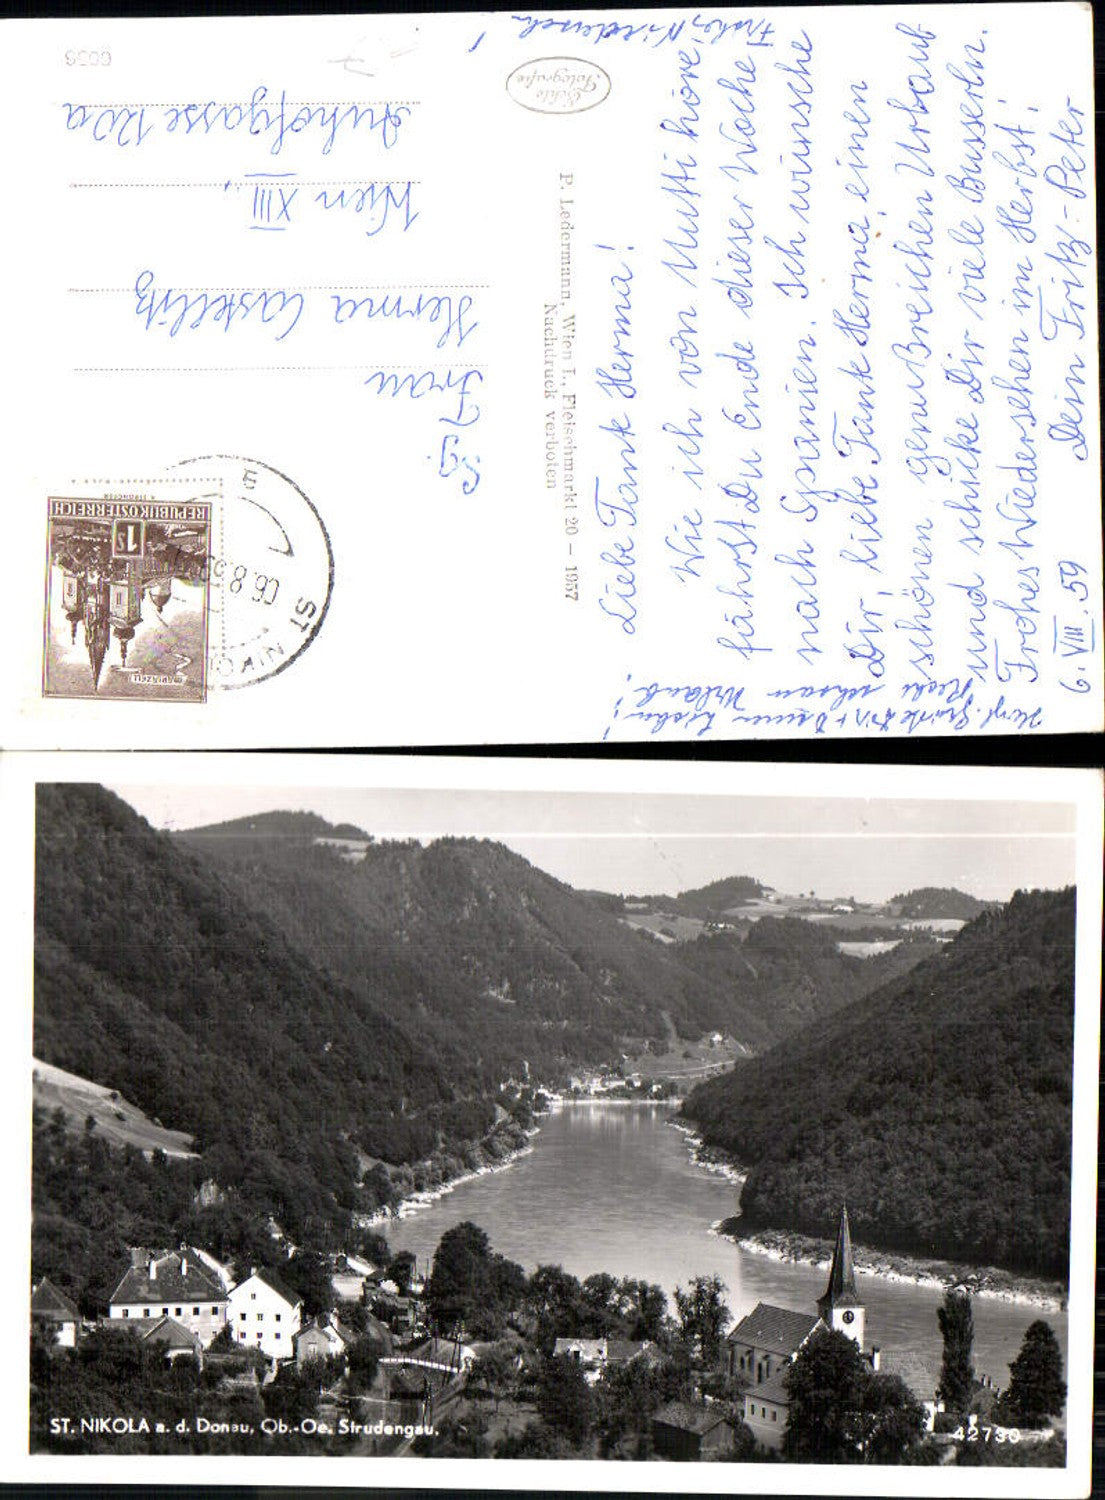 Liebe Tante Herma!
Wie ich von Mutti höre
fährst Du Ende dieser Woche
nach Spanien. Ich wünsche
Dir, liebe Tante Herma, einen
schönen, genußreichen Urlaub
und schicke Dir viele Busserln.
Frohes Wiedersehen im Herbst!
6. VIII. 59 Dein Fritz-Peter
Recht schönen Urlaub!
Frohes Wiedersehn!
P. Ledermann, Wien I., Fleischmarkt 20 - 1957
Nachdruck verboten
Echte
Fotografie
REPUBLIK ÖSTERREICH
1 S
MARIAZELL
ST. NIKOL
06.8.59
Sg.
Frau
Herma Castellitz
Wien XIII,
Auhofgasse 120a
6036
ST. NIKOLA a. d. Donau, Ob.-Oe. Strudengau.
42730